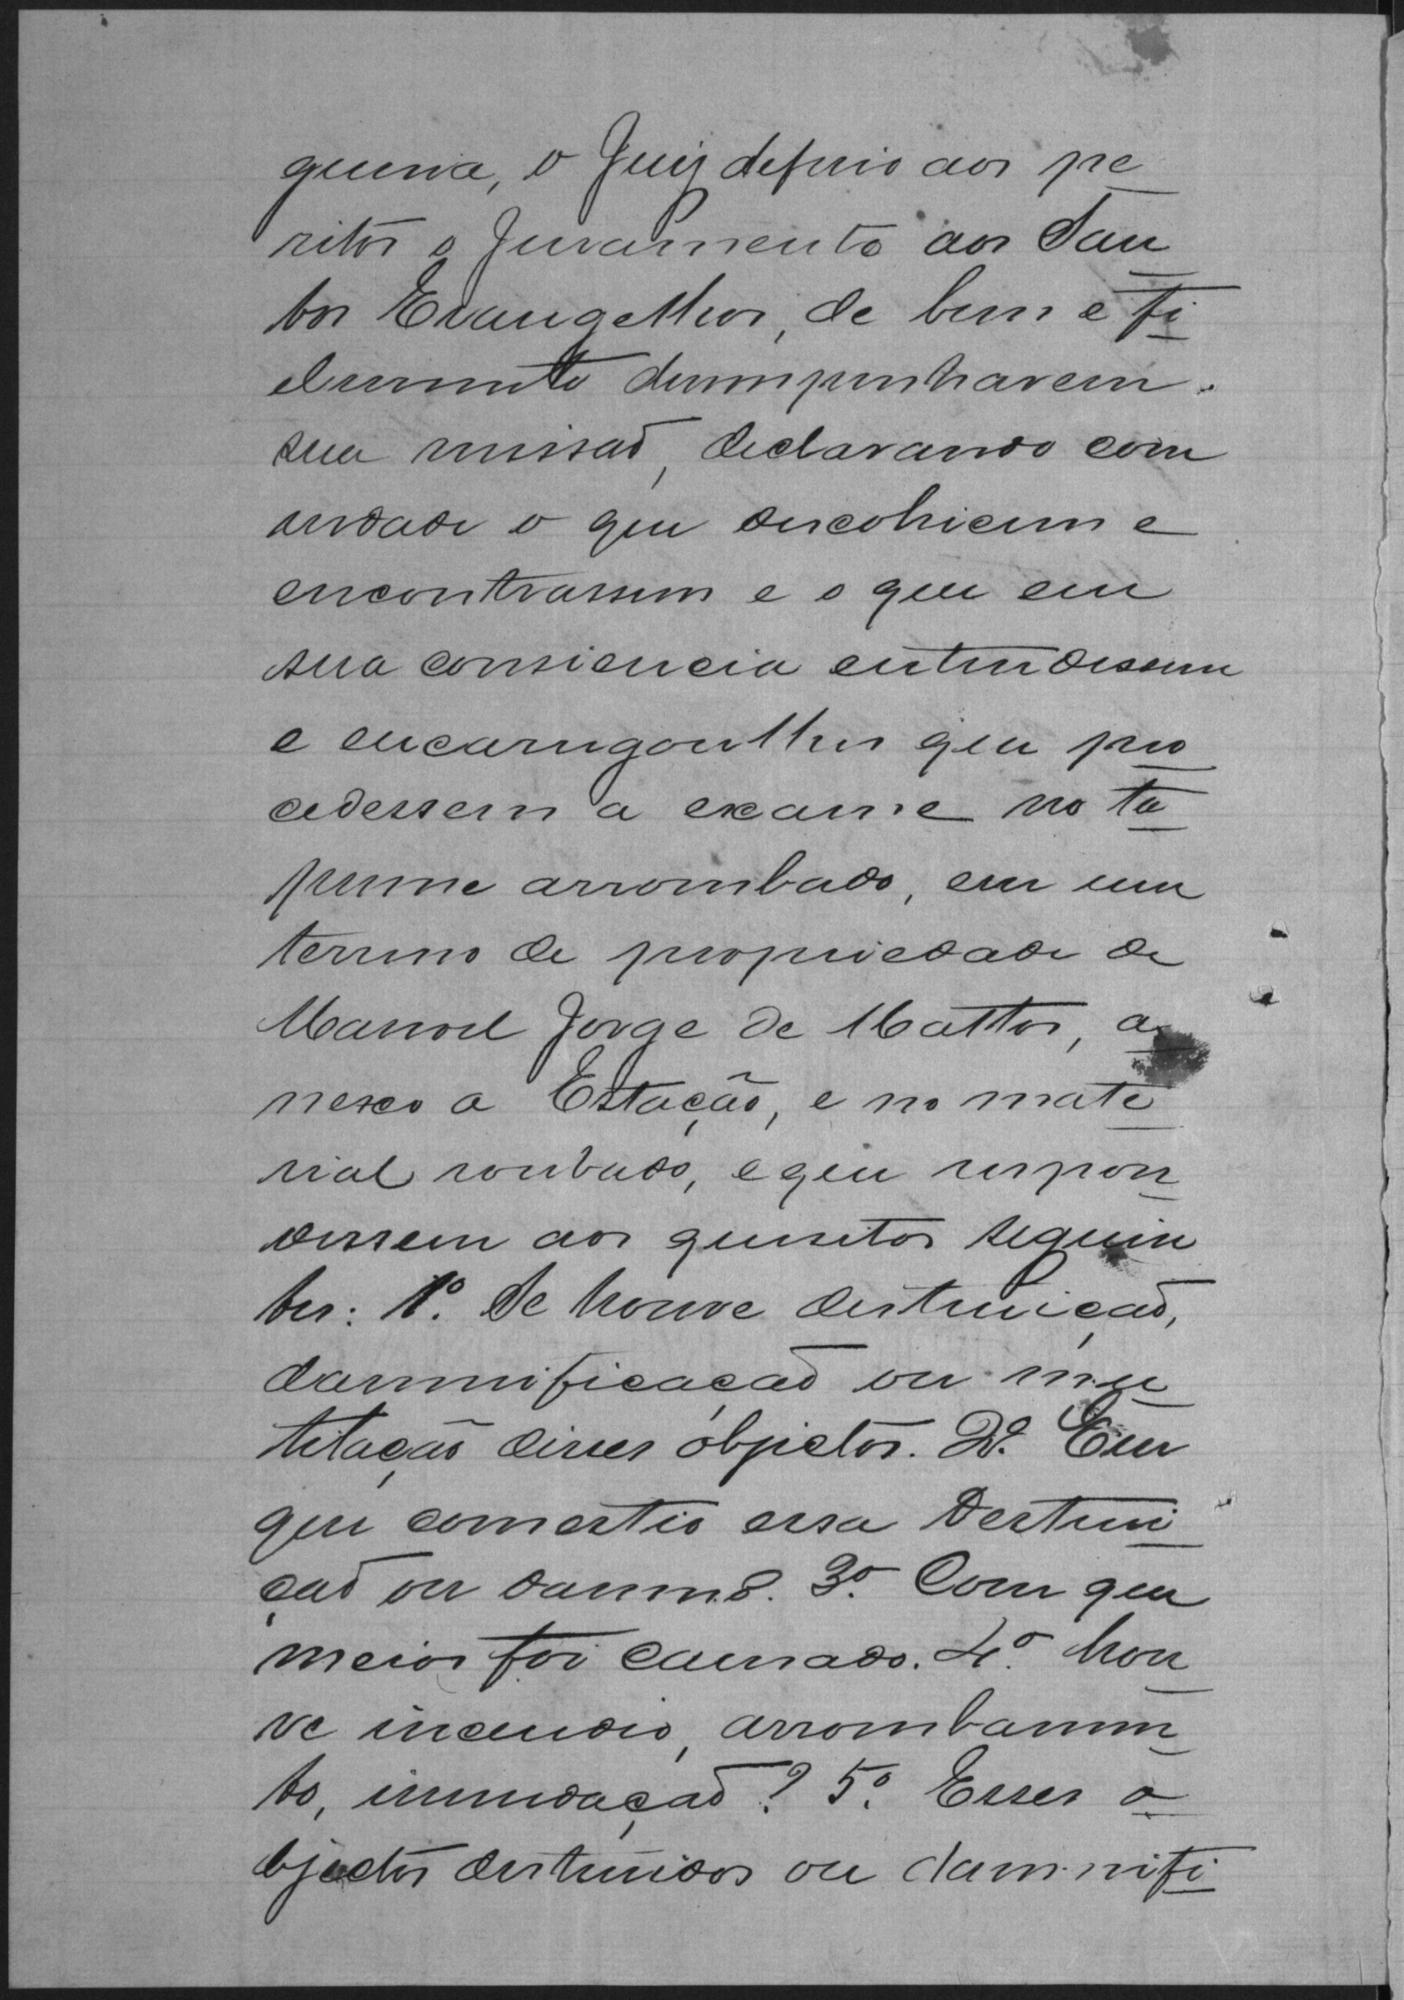 quencia, o Juiz deferio aos pe
ritos o Juramento aos San
tos Evangelhos, de bem e fi
elmente desempenharem
sua missaõ, declarando com
verdade o que descobrirem e
encontrassem e o que em
sua consiencia entendessem
e encarregoulhes que pro
cedessem a exame no ta
pume arrombado, em um
terreno de propriedade de
Manoel Jorge de Mattos, a
nexo a Estação, e no mate
rial roubado, e que respon
dessem aos quesitos seguin
tes: 1º. Se houve destruiçaõ,
damnificaçaõ ou mu
tilação desses objectos. 2º. Em
que comsstio essa destrui
çaõ ou damno. 3º. Com que
meios foi causado. 4º. hou
ve incendio, arrombamen
to, inundaçaõ? 5º. Esses o
bjectos destruidos ou damnifi